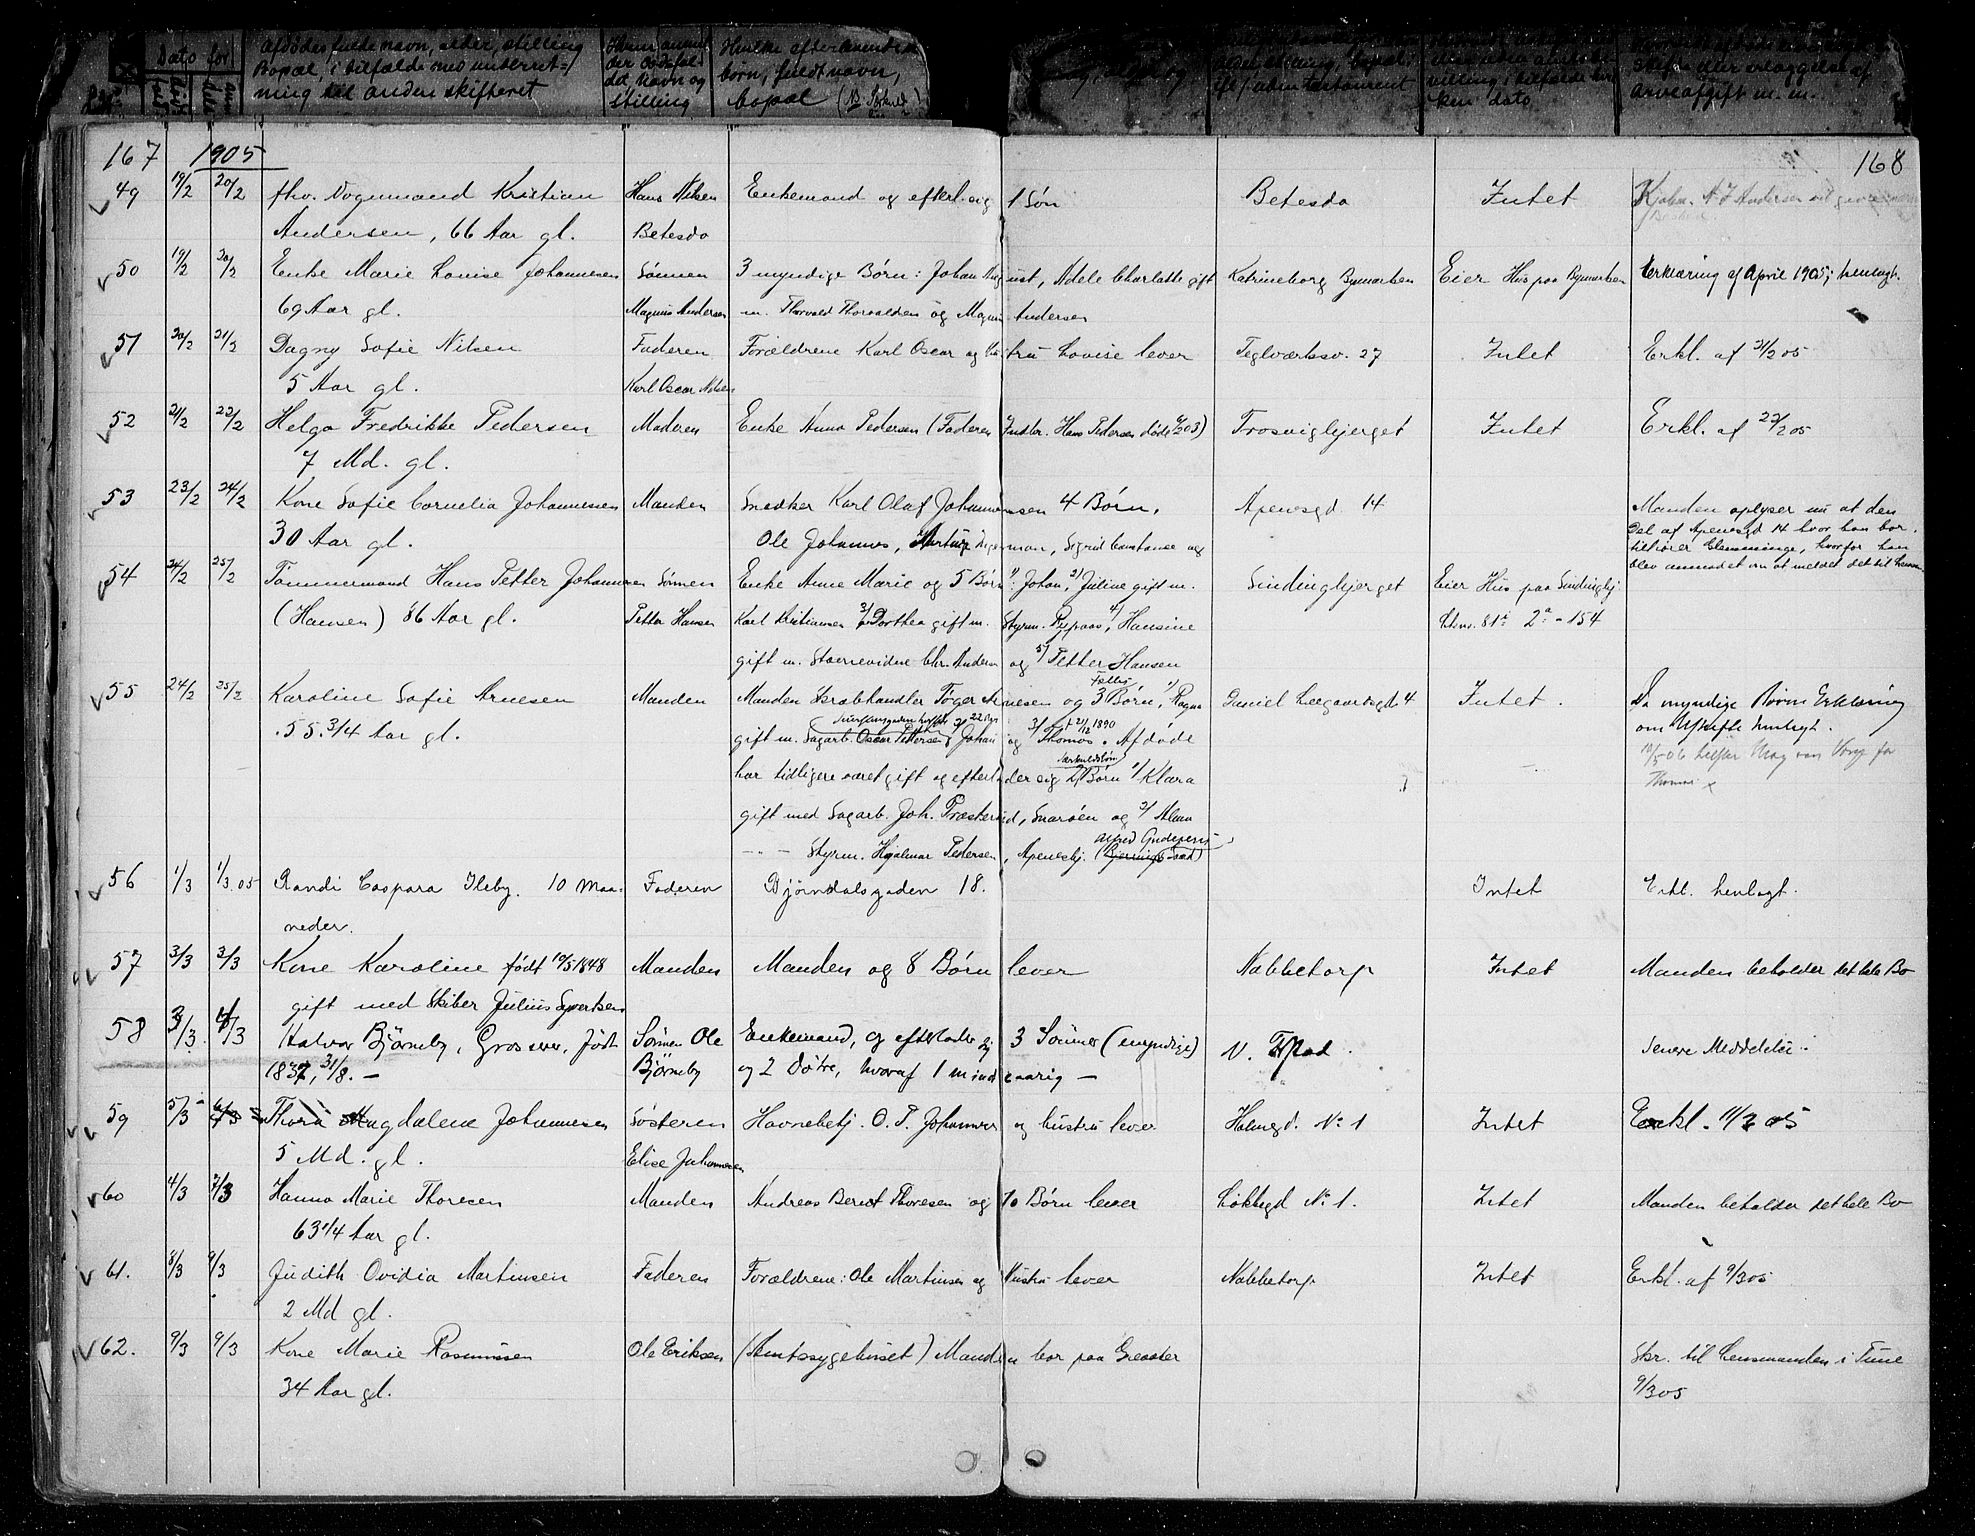 Dato for
Afdødes fulde navn, alder, stilling
Bopæl, i tilfælde med underret-
ning til anden skifteret
navn og
stilling
børn, fuldt navn,
bopæl
ken dato
arveafgift m. m.
167 1905 168
49 19/2 20/2 fhv. Vognmand Kristian Hans Nilsen Enkemand og efterl. sig 1 Søn Betesda Intet
Andersen, 66 Aar gl. Betesda
50 19/2 20/2 Enke Marie Louise Johannesen Sønnen 3 myndige Børn: Johan August, Adele Charlotte gift Katrineborg Bymarken Eier Hus paa Bymarken Erklæring af April 1905; henlagt.
69 Aar gl. Magnus Andersen m. Thorvald Thorvaldsen og Magnus Andersen
51 20/2 21/2 Dagny Sofie Nilsen Faderen Forældrene Karl Oscar og Hustru Lovise lever Teglværksv. 27 Intet Erkl. af 21/2 05
5 Aar gl. Karl Oscar Nilsen
52 21/2 22/2 Helga Fredrikke Pedersen Moderen Enke Anna Pedersen (Faderen Hans Pedersen døde 03) Trosvigbjerget Intet Erkl. af 22/2 05
7 Md. gl.
53 23/2 24/2 Kone Sofie Cornelia Johannessen Manden Snedker Karl Olaf Johannessen 4 Børn. Apenesgd. 14 Manden oplyser nu at den
30 Aar gl. Ole Johannes, Sigrid Constanse og Del af Apenesgd 14 hvor han bor
tilhører Glemminge, hvorfor han
blev anmodet om at melde det til Lensm.
54 24/2 25/2 Tømmermand Hans Petter Johannesen Sønnen Enke Anne Marie og 5 Børn 1/ Johan, 2/ Juline gift m. Sindingbjerget Eier Hus paa Sindingbj.
(Hansen) 86 Aar gl. Petter Hansen Karl Kristiansen 3/ Dorthea gift m. Styrm. 4/ Hansine 81a 2a - 154
gift m. Stevnevidne Chr. Andersen og 5/ Petter Hansen
55 24/2 25/2 Karoline Sofie Arnesen Manden Manden Skrabhandler Tøger Arnesen og 3 Fælles Børn, 1/ Ragna Daniel Leegaardsgd. 4 Intet. De myndige Børns Erklæring
55 3/4 Aar gl. gift m. Sagarb. Oscar Pettersen 2/ Johan 22 Aar og 3/ Thomas f. 21/12 1890. Afdøde om Uskifte henlagt.
har tidligere været gift og efterlader sig 2 Særkuldsbørn 1/ Klara Thomas x
gift med Sagarb. Joh. Præsterød, Snarøen og 2/ Alma
– – – Styrm. Hjalmar Pedersen, Apenesbj.
56 1/3 1/3 05 Randi Caspara Ileby. 10 Maa- Faderen Bjørndalsgaden 18. Intet Erkl. henlagt.
neder.
57 3/3 3/3 Kone Karoline født 10/5 1848 Manden Manden og 8 Børn lever Nabbetorp Intet Manden beholder det hele Bo
gift med Skiber Julius Syvertsen
58 3/3 4/3 Halvor Bjørneby, Grosserer, født Sønnen Ole Enkemand, og efterlader sig 3 Sønner (myndige) Senere Meddelelse.
1837, 31/8. – Bjørneby og 2 Døtre, hvoraf 1 mindreaarig –
59 5/3 6/3 Thora Magdalene Johannesen Søsteren Havnebetj. O. P. Johannesen og hustru lever Holmegd. No 1 Intet Erkl. 11/3 05
5 Md. gl. Elise Johannesen
60 4/3 7/3 Hanna Marie Thoresen Manden Andreas Bernt Thoresen og 10 Børn lever Løkkegd No 1. Intet Manden beholder det hele Bo
63 1/4 Aar gl.
61. 8/3 9/3 Judith Ovidia Martinsen Faderen Forældrene: Ole Martinsen og Hustru lever Nabbetorp Intet Erkl. af 9/3 05
2 Md gl.
62. 9/3 9/3 Kone Marie Rasmussen Ole Eriksen (Amtssygehuset) Manden bor paa Greaaker Skr. til Lensmanden i Tune
34 Aar gl. 9/3 05